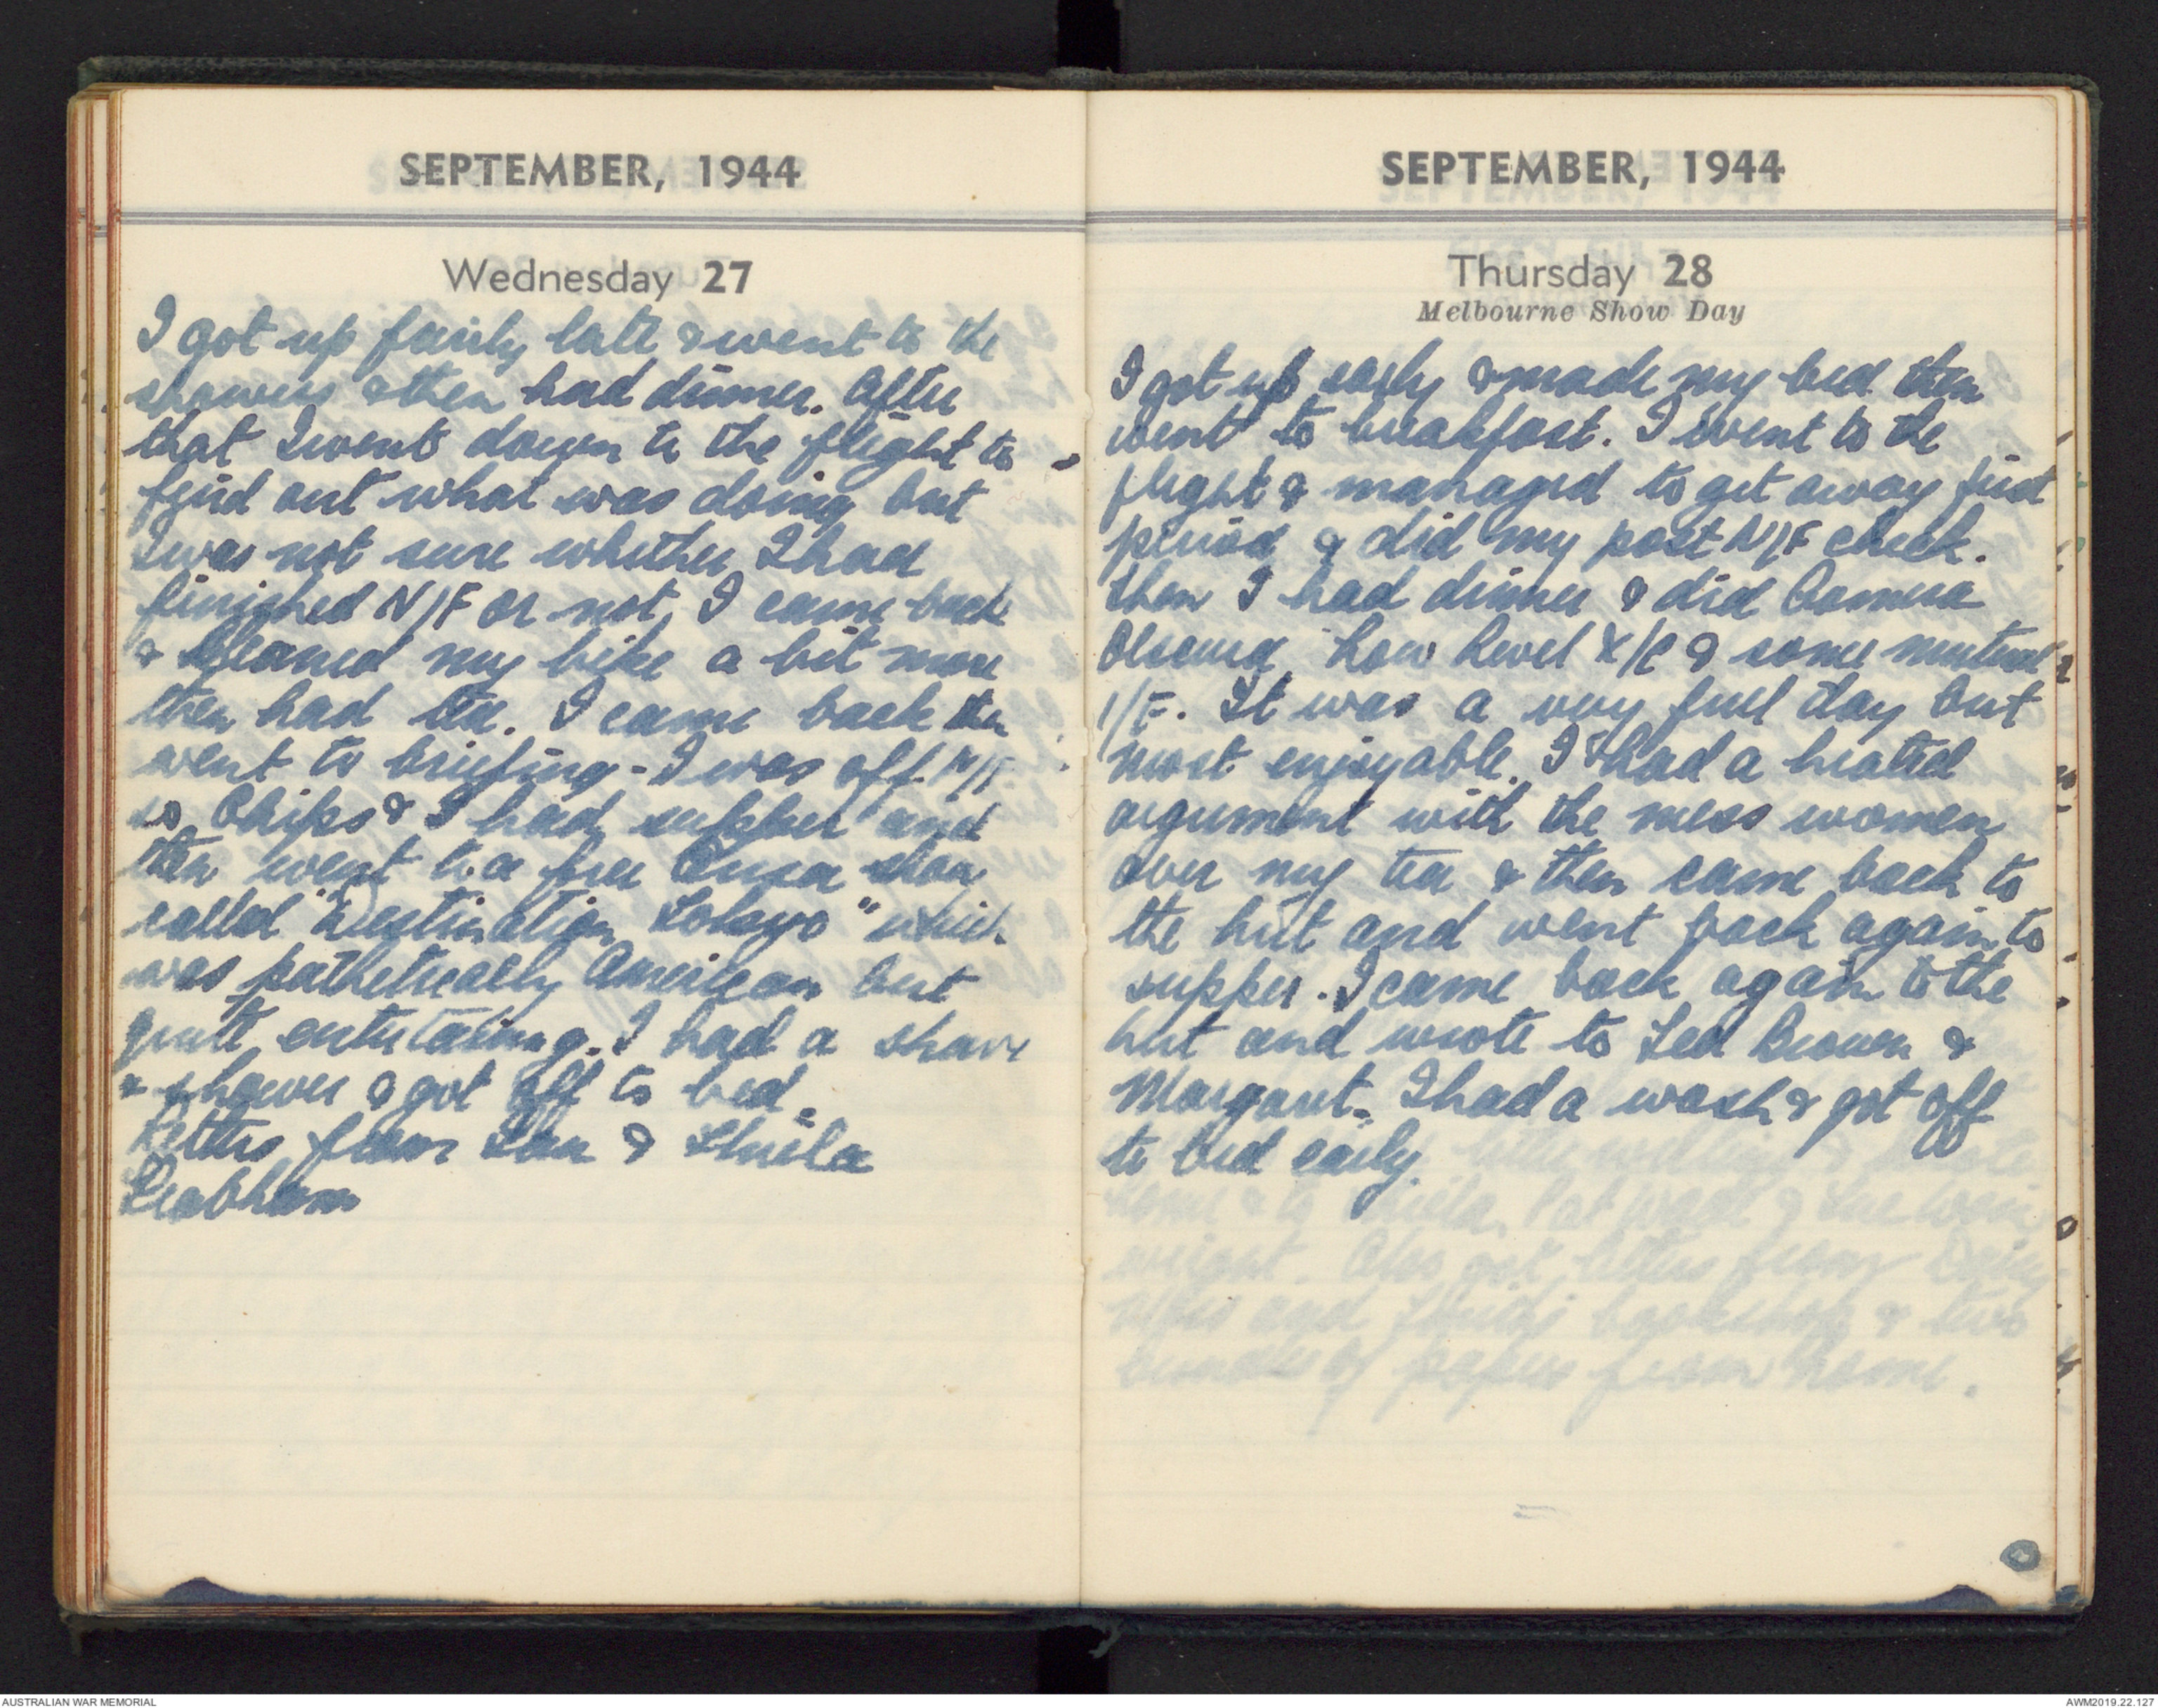 SEPTEMBER, 1944
Wednesday 27
I got up fairly late & went to the
showers & then had dinner. After
that I went down to the flight to
find out what was doing but
I was not sure whether I had
finished N/F or not, I came back
& cleaned my bike a bit more
then had tea. I came back then
went to briefing - I was off N/F
so Chips & I had supper and
then went to a free Ensa show
called "Destination Tokyo" which
was pathetically American but
quite entertaining. I had a shave
& shower & got off to bed.
Letters from Ian & Sheila
SEPTEMBER, 1944
Thursday 28
Melbourne Show Day
I got up early & made my bed then
went to breakfast. I went to the
flight & managed to get away first
period & did my post N/F check.
Then I had dinner & did Camera
Obscura Low Level X/C & some mutual
I/F. It was a very full day but
most enjoyable. I had a heated
argument with the mess women
over my tea & then came back to
the hut and went back again to
supper. I came back again to the
hut and wrote to Ted Brown &
Margaret. I had a wash & got off
to bed early.
AUSTRALIAN WAR MEMORIAL
AWM2019.22.127